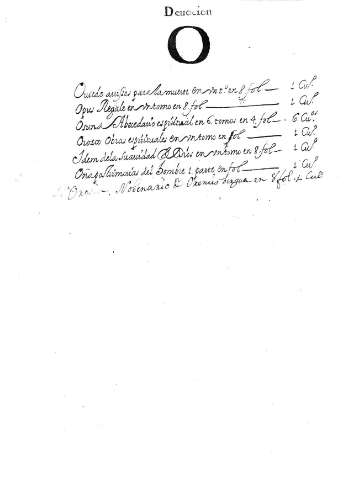 Deuocion
O
Ouiedo auisos para la muerte en un tº. en 8 fol — 1 Cul.
Opus Regale en un tomo en 8 fol — 1 Cul.
Osuna Abecedario espiritual en 6 tomos en 4 fol - 6 Cul.
Orozco obras espirituales en un tomo en fol — 1 Cul.
Idem de la suauidad de Dios en un tomo en 8 fol — 1 Cul
Oña postrimerias del hombre 1. parte en fol — 1 Cul
Nouenario en lengua en 8 fol 1 Cul